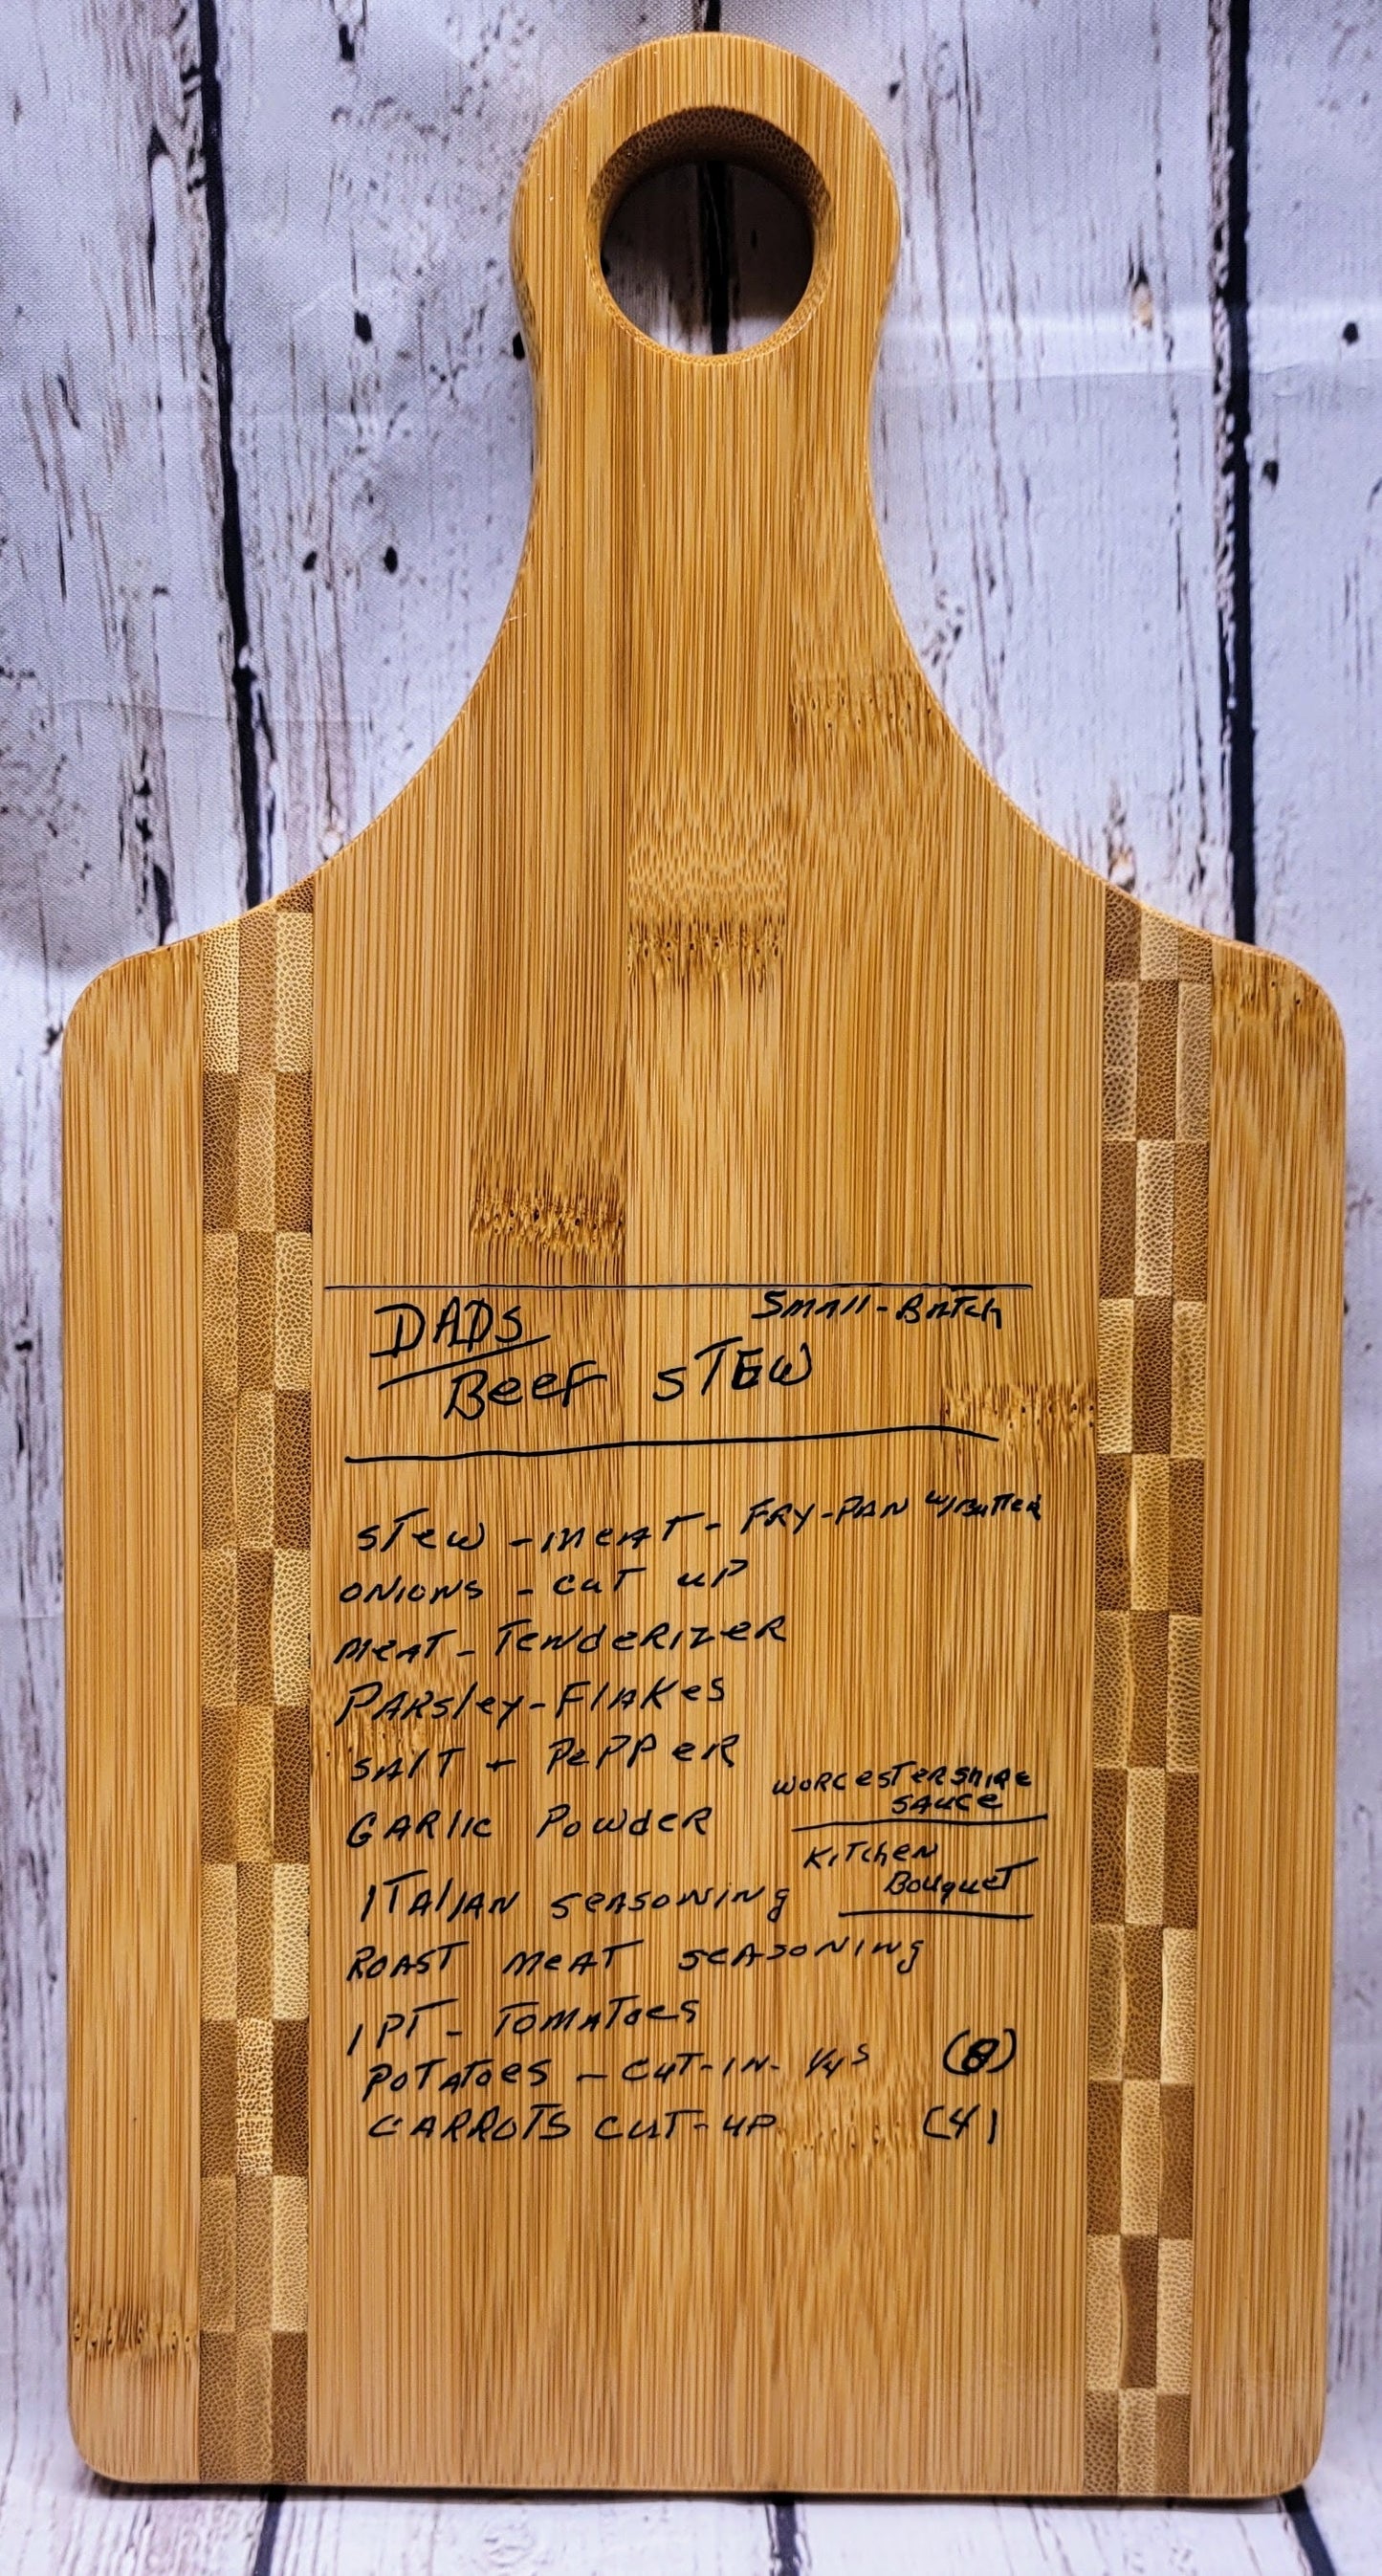 DADS
Small-Batch
Beef STEW
STEW - MEAT - FRY-PAN w/Butter
ONIONS - CUT UP
MEAT - TENDERIZER
PARSley - FlAKeS
SAlT + PePPeR
GARlic Powder
WORCESTERSHIRE
SAUCE
KiTchen
BouqueT
ITAlIAN SEASONING
ROAST MEAT SEASONING
1 PT - TOMATOES
POTATOES - CUT-IN- 1/4s (8)
CARROTS CUT-UP (4)